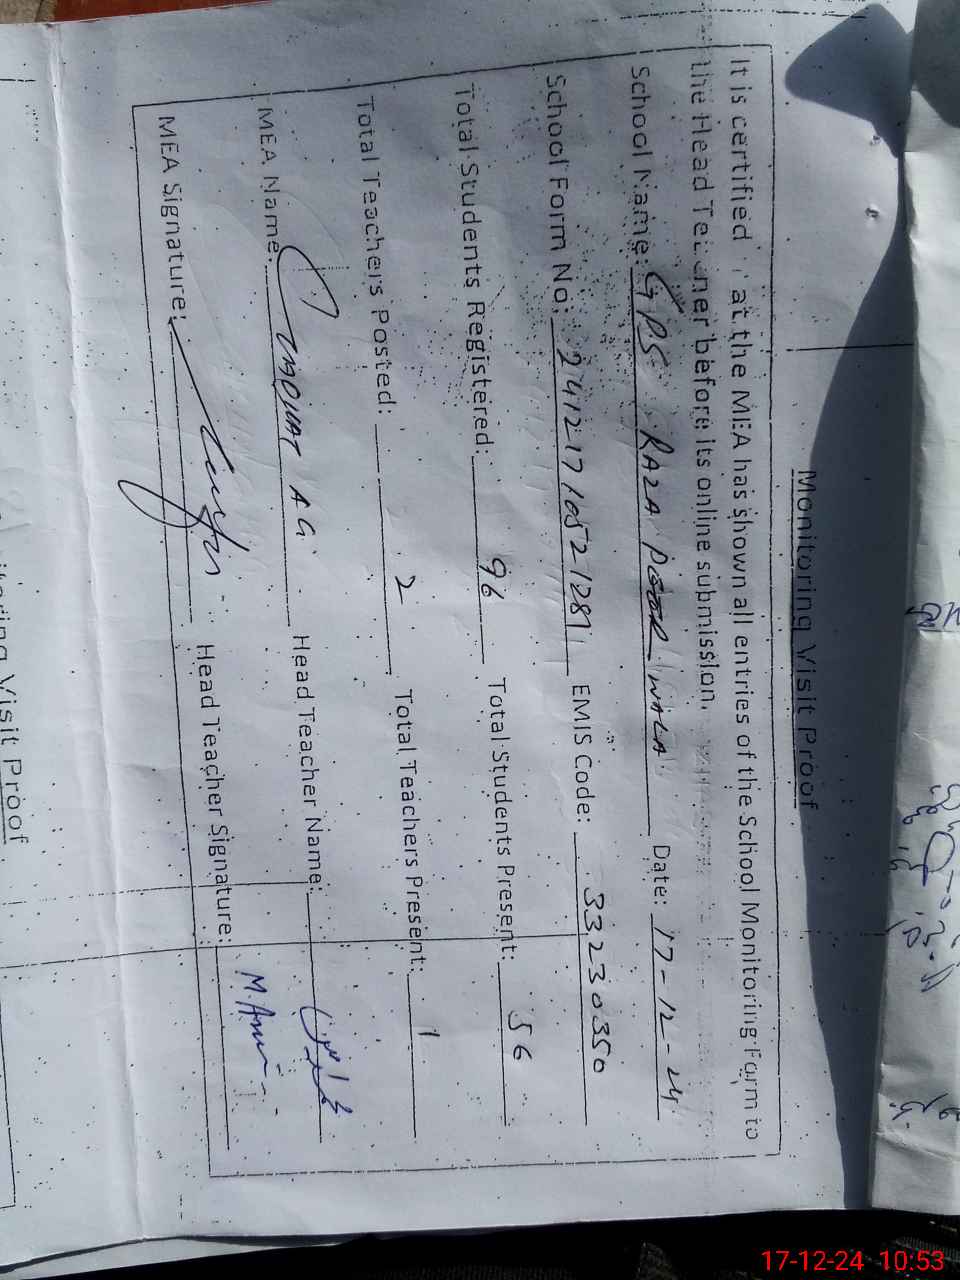 Monitoring Visit Proof
It is certified at the MEA has shown all entries of the School Monitoring Form to
the Head Teacher before its online submission.
School Name: GPS RAZA POOR WALA Date: 17-12-24
School Form No: EMIS Code: 33230350
Total Students Registered: 96 Total Students Present: 56
Total Teachers Posted: 2 Total Teachers Present: 1
MEA Name: Head Teacher Name:
MEA Signature: Head Teacher Signature: M.
Visit Proof
17-12-24 10:53